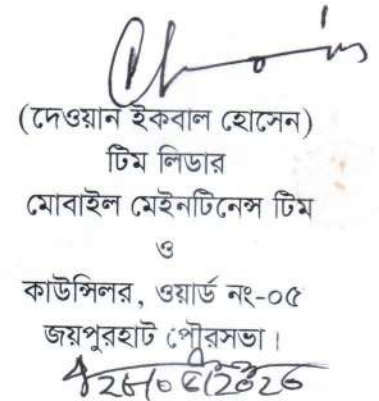 (দেওয়ান ইকবাল হোসেন)
টিম লিডার
মোবাইল মেইনটিনেন্স টিম
ও
কাউন্সিলর, ওয়ার্ড নং-০৫
জয়পুরহাট পৌরসভা।